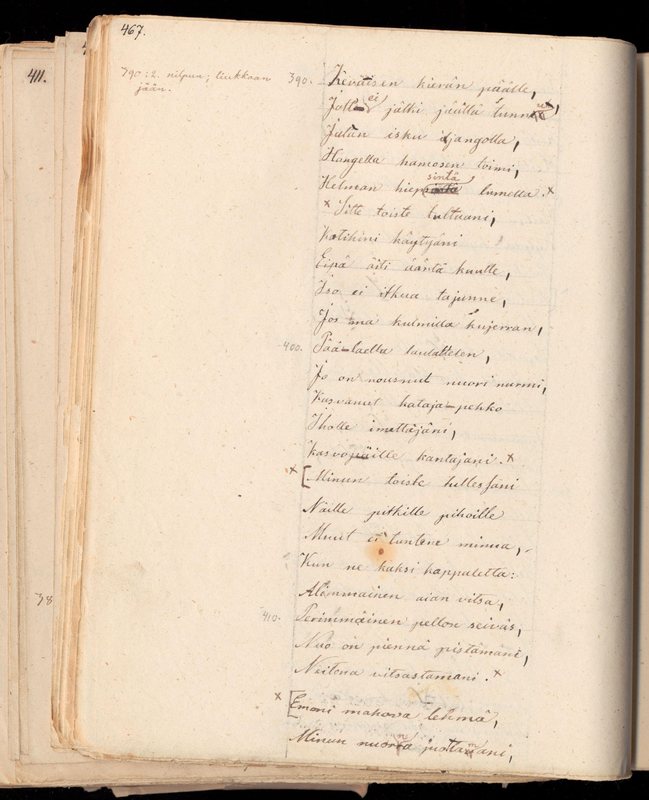 467.
411.
390:2. nilpun; liukkaan
jään.
390. Keväisen kierän päälle,
Joll' ei jälki jäällä tunnu,
Jalan isku iljangolla,
Hangella hamosen toimi,
Helman hiepsintä lumella.×
× Sitte toiste tultuani,
Kotihini käytyäni
Eipä äiti ääntä kuulle,
Iso ei itkua tajunne,
Jos ma kulmilla kujerran,
400. Pää-laella laulattelen,
Jo on nousnut nuori nurmi,
Kasvanut kataja-pehko
Iholle imettäjäni,
Kasvopäille kantajani.×
× [Minun toiste tullessani
Näille pitkille pihoille
Muut ei tuntene minua,
Kun ne kaksi kappaletta:
Alimmainen aian vitsa,
410. Perimmäinen pellon seiväs,
Nuo on piennä pistämäni,
Neitona vitsastamani.×
× [Emoni mahova lehmä,
Minun nuorna juottamani,
38